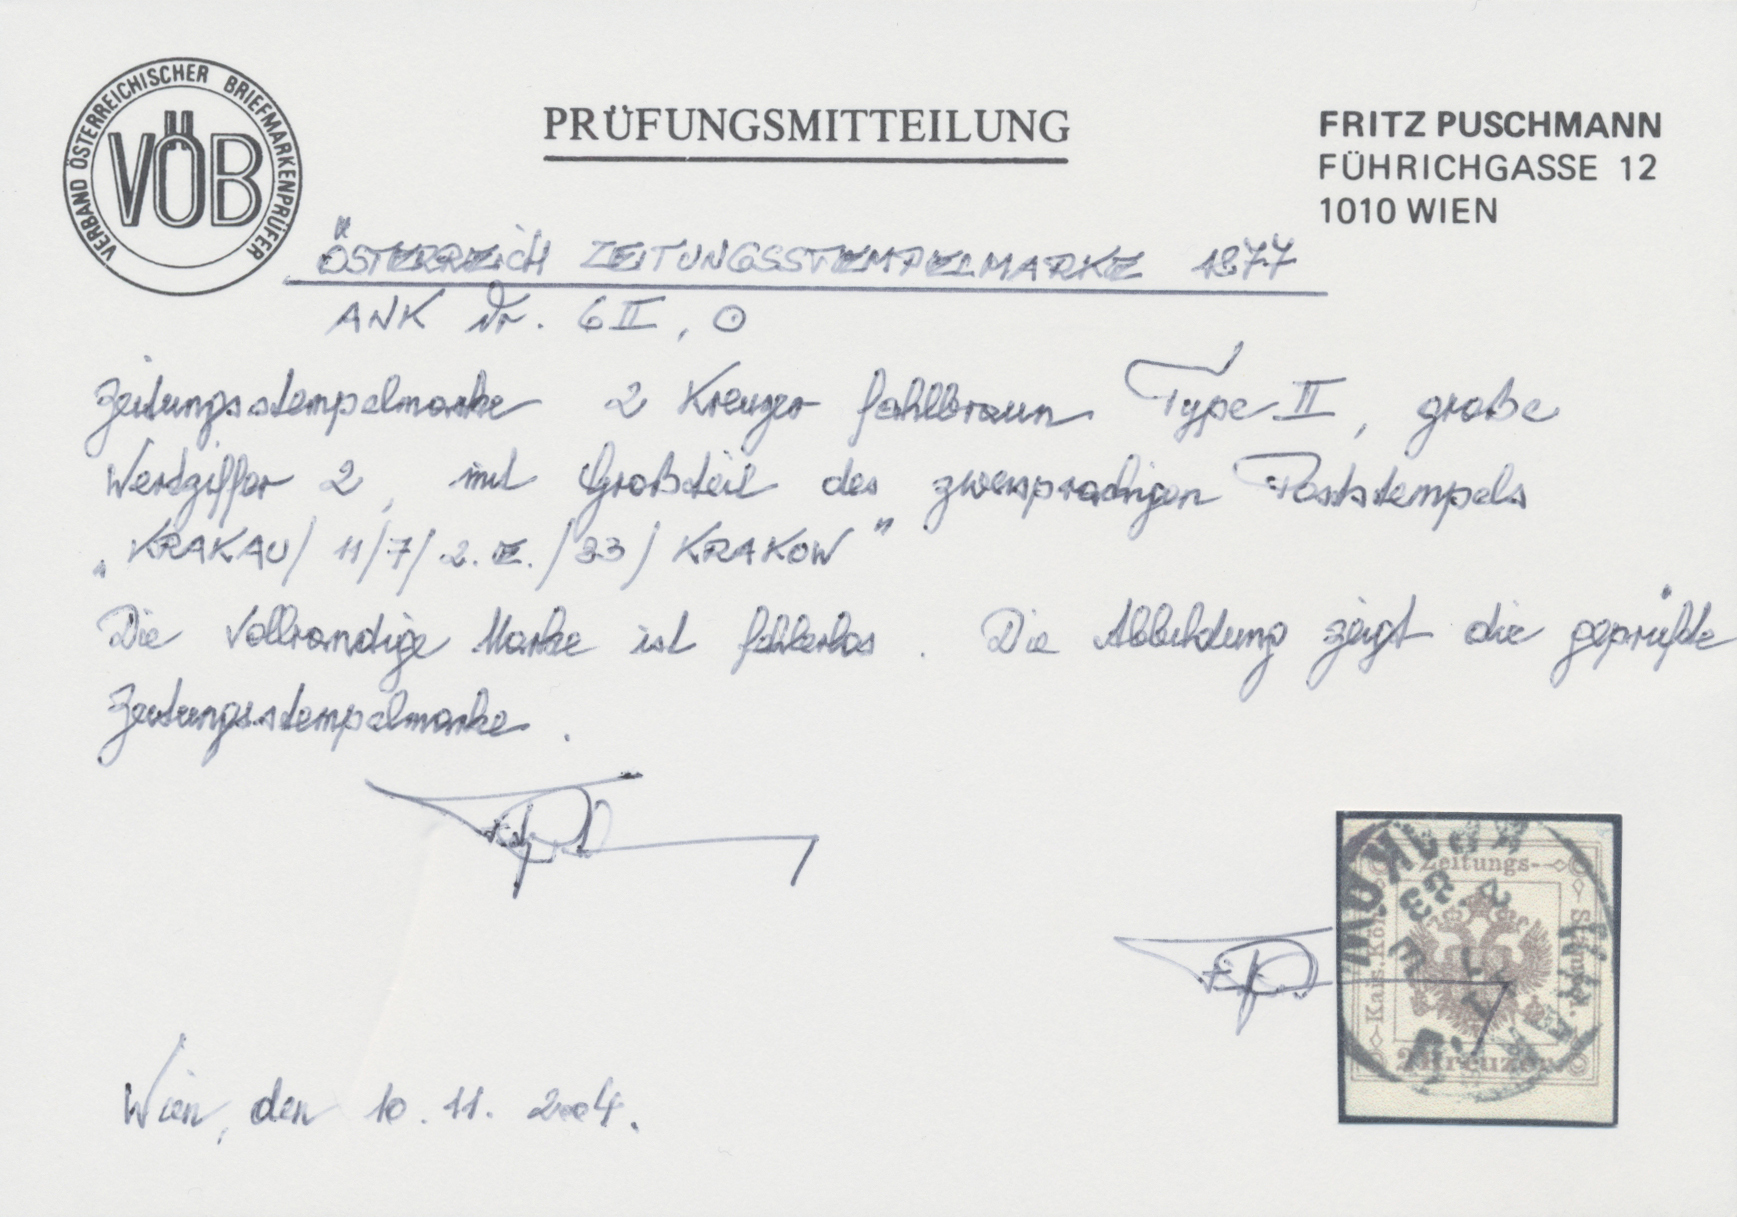 VERBAND ÖSTERREICHISCHER BRIEFMARKENPRÜFER
VÖB
PRÜFUNGSMITTEILUNG
FRITZ PUSCHMANN
FÜHRICHGASSE 12
1010 WIEN
ÖSTERREICH ZEITUNGSSTEMPELMARKE 1877
ANK Nr. 6 II, ⊙
Zeitungsstempelmarke 2 Kreuzer fahlbraun Type II, große
Wertziffer 2, mit Großteil des zweisprachigen Poststempels
„KRAKAU / 11/7 / 2. E. / 83 / KRAKOW"
Die vollrandige Marke ist fehlerlos. Die Abbildung zeigt die geprüfte
Zeitungsstempelmarke.
Wien, den 10. 11. 2004.
Zeitungs-
Kais. Kön.
Stempel
2 Kreuzer
KRAKOW